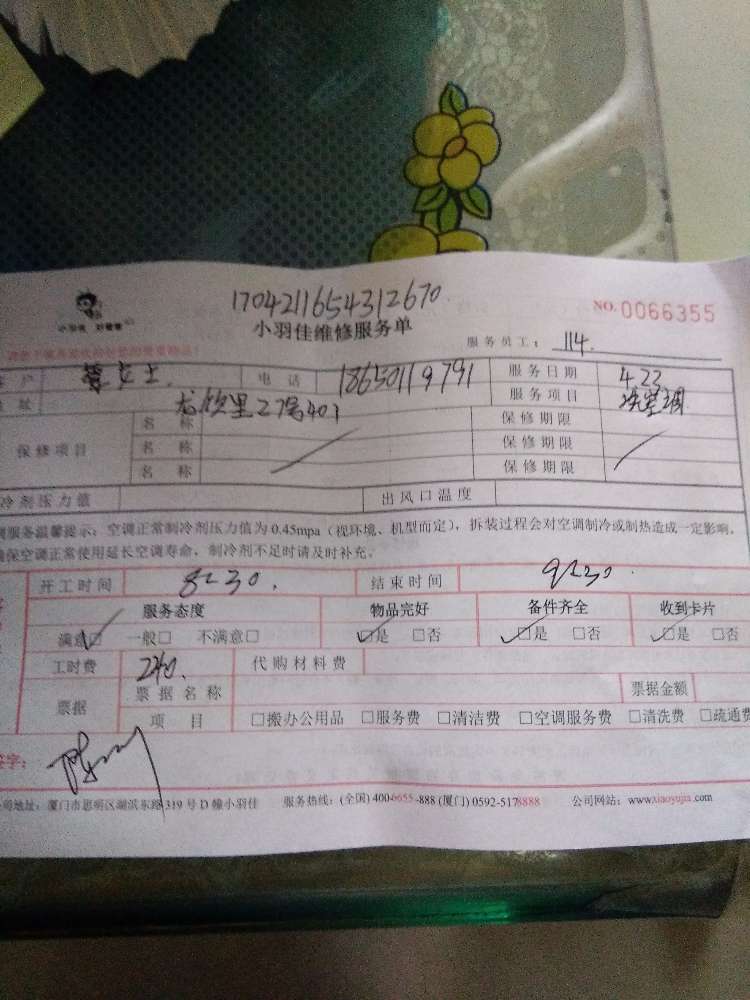 1704211654312670
小羽佳 好管家
小羽佳维修服务单
NO. 0066355
服务员工: 114.
客户 女士. 电话 18650119791 服务日期 4.23
地址 27号401 服务项目 洗空调
保修项目 名称 保修期限
名称 保修期限
名称 保修期限
冷剂压力值 出风口温度
调服务温馨提示:空调正常制冷剂压力值为0.45mpa(视环境、机型而定),拆装过程会对空调制冷或制热造成一定影响,
确保空调正常使用延长空调寿命,制冷剂不足时请及时补充。
开工时间 8:30. 结束时间 9:30
服务态度 物品完好 备件齐全 收到卡片
满意□ 一般□ 不满意□ □是 □否 □是 □否 □是 □否
工时费 240. 代购材料费
票据 票据名称 票据金额
项目 □搬办公用品 □服务费 □清洁费 □空调服务费 □清洗费 □疏通费
签字:
公司地址:厦门市思明区湖滨东路319号D幢小羽佳 服务热线:(全国)400-6655-888 (厦门) 0592-5178888 公司网站:www.xiaoyujia.com